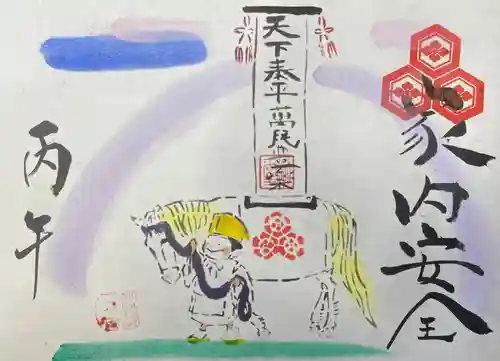 家内安全
天下泰平萬民豊楽
丙午